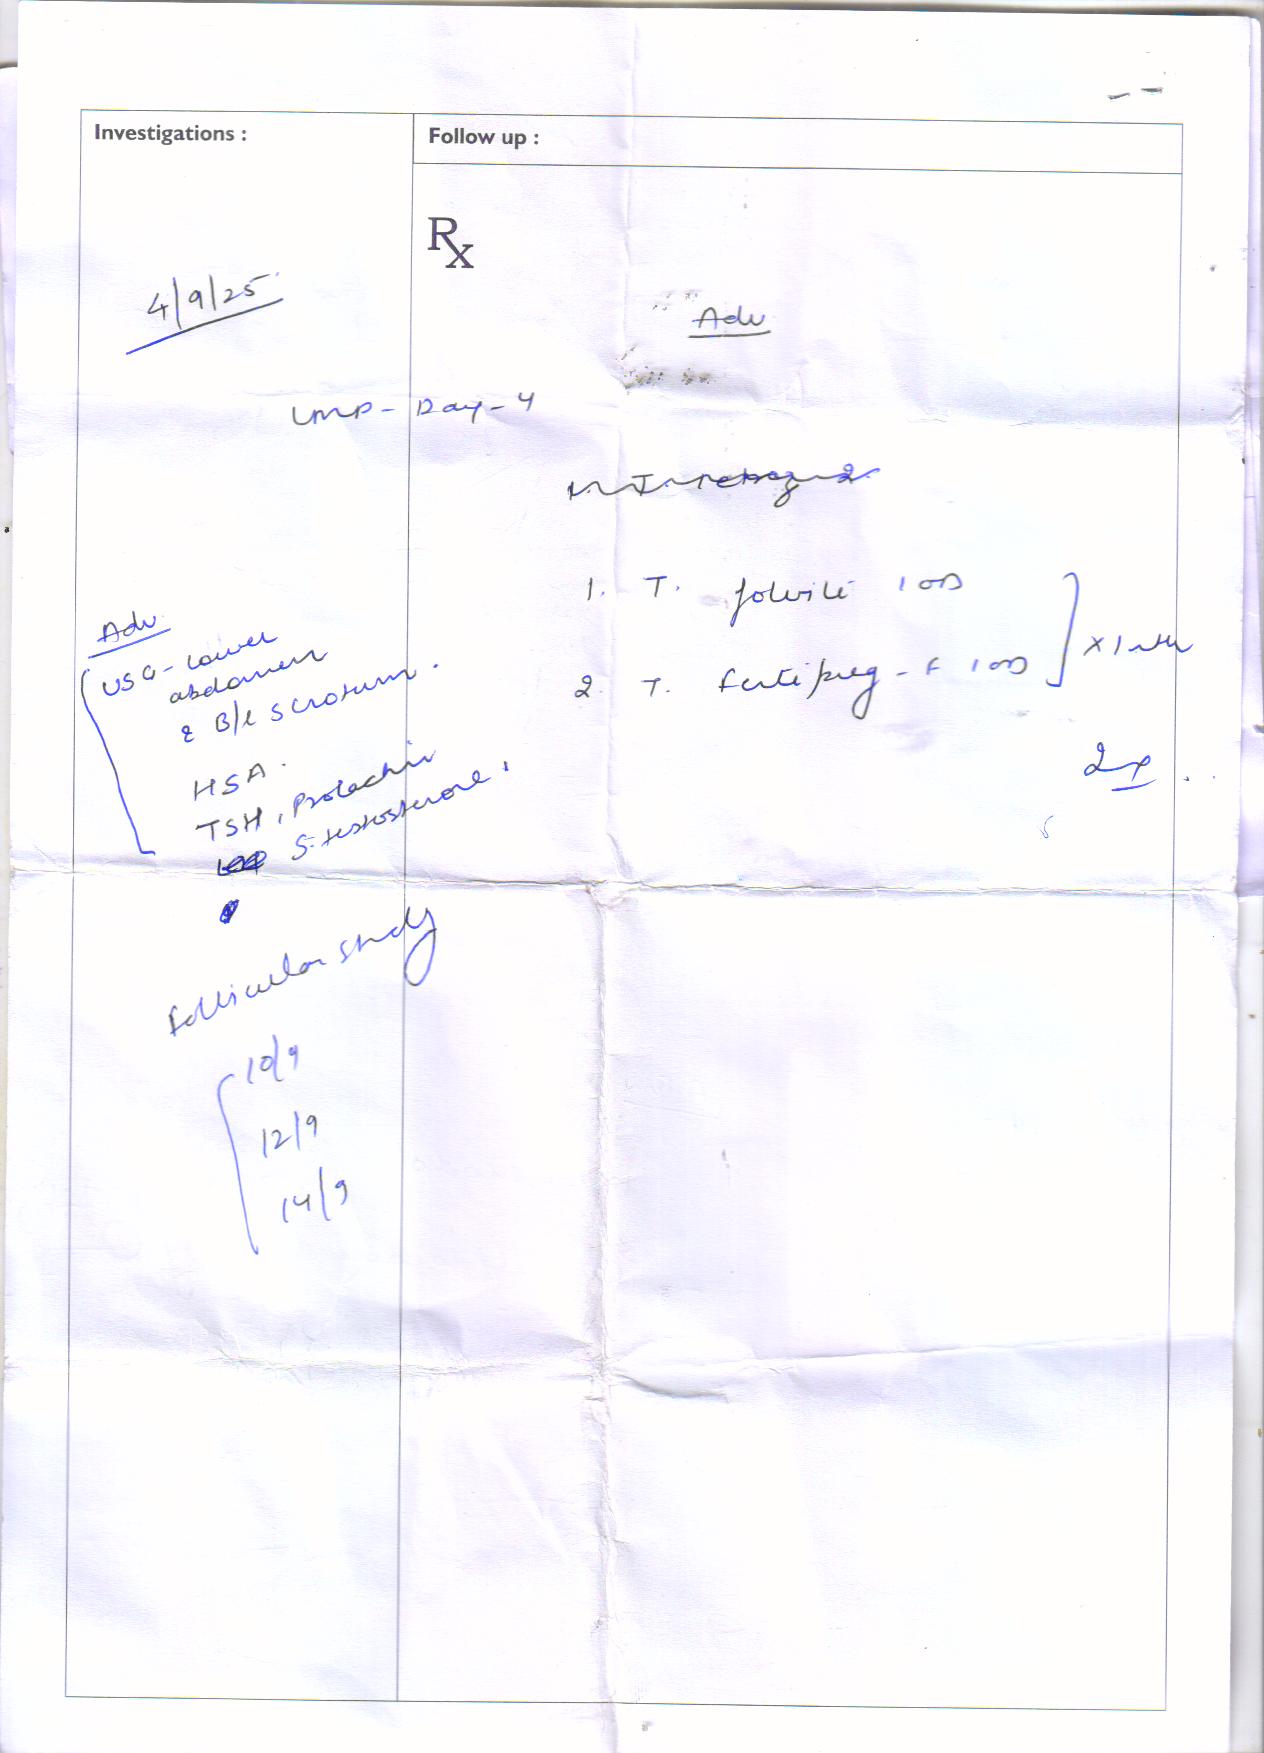 Investigations :
Follow up :
Rx
4/9/25
Adv
LMP - Day - 4
1. T. folvite 1 OD
2. T. Fertipreg - F 1 OD
x 1 mth
Adv
USG - Lower
abdomen
& B/L Scrotum.
HSA.
TSH, Prolactin
S. testosterone.
Follicular study
10/9
12/9
14/9